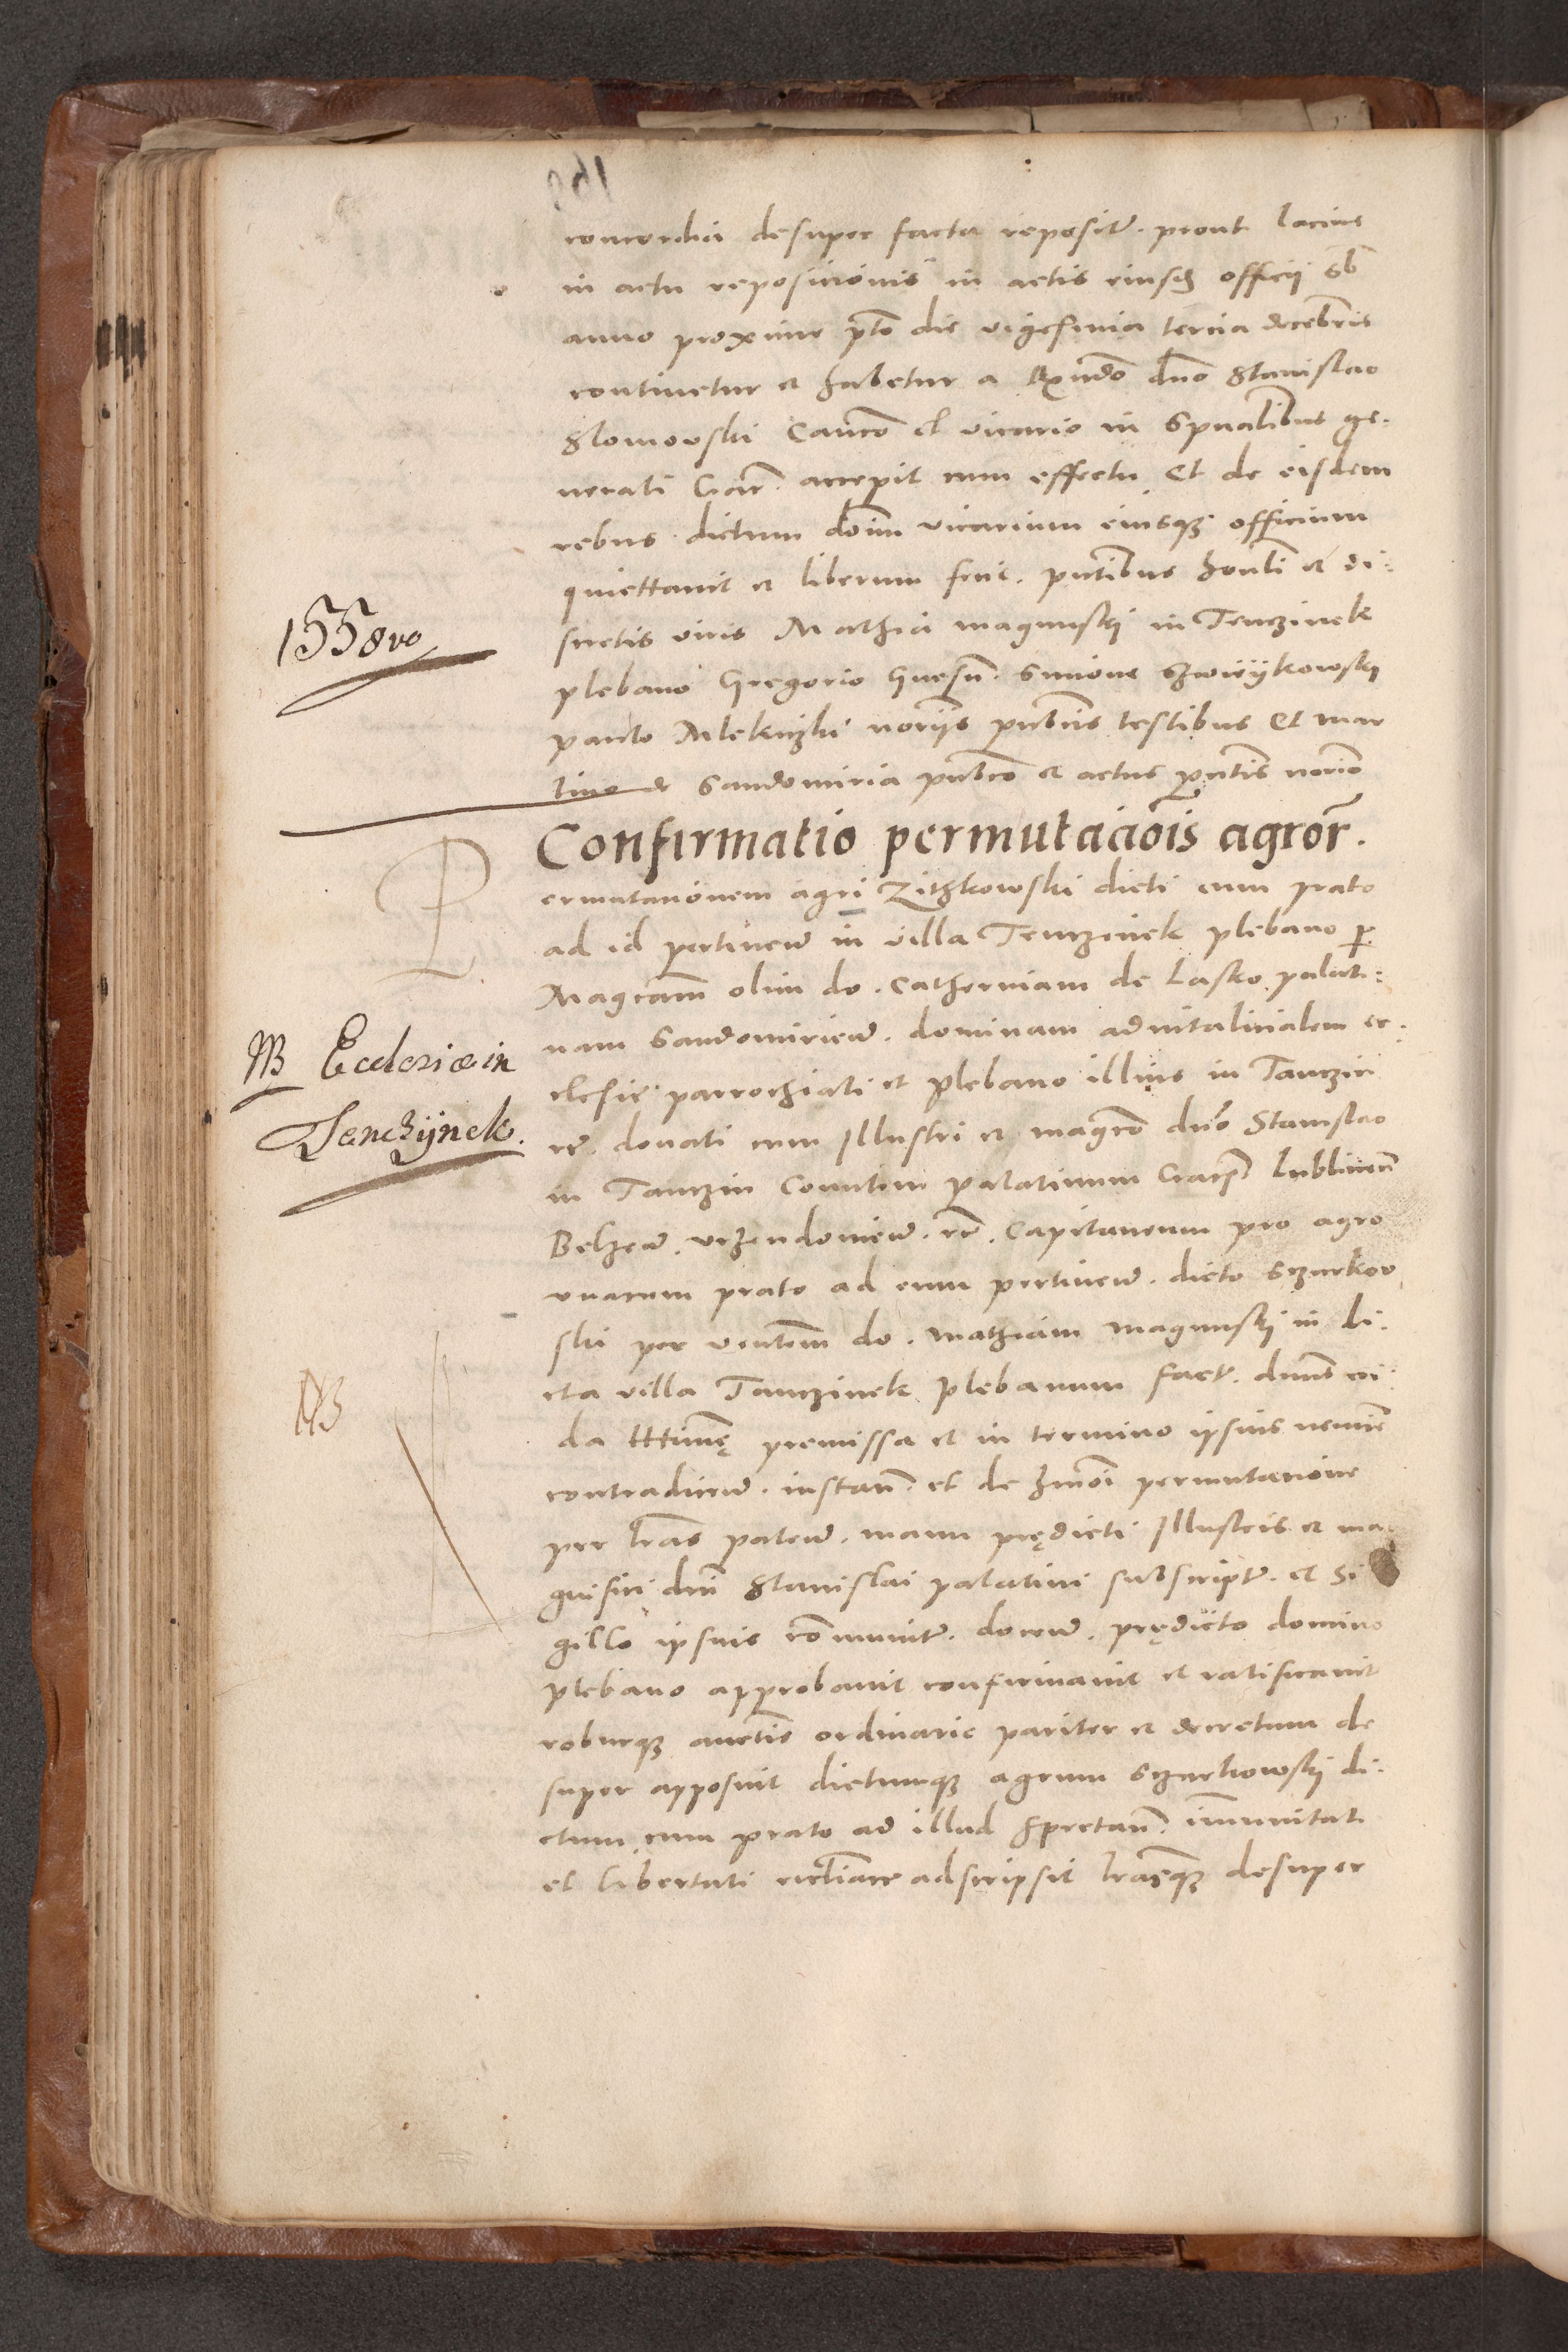 concordia desuper facta reposit. prout lacius
in actu reposicionis in actis eiusd officij sb
anno proxime pto die vigesima tercia decembris
continetur et habetur a Rndo dno Stanislao
Slomovski Canco et vicario in Spualibus ge-
nerali Crac. accepit cum effectu Et de eisdem
rebus dictum dom vicarium eiusq officium
quiettavit et liberum fecit. pntibus honli et di-
scretis viris Mathia magnuski in Tenczinek
plebano Gregorio Gnesn. Simone
paulo noriis publicis testibus Et mar
tino de Sandomiria publico et actus pntis norio
1558vo
Confirmatio permutaciois agror.
Permutacionem agri Zithkowski dicti cum prato
ad id pertinen in villa Tenczinek plebano p
Magcam olim do. Catherinam de Lasko palati-
nam Sandomirien. dominam advitalicialem ec-
clesie parrochiali et plebano illius in Tanczin
re. donati cum Illustri et magco dno Stanislao
in Tanczin Comitem palatinum Crac Lublinen
Belzen. vrzendowien. re. Capitaneum pro agro
vnacum prato ad eum pertinen. dicto Sczarkov
ski per venlem do. Mathiam Magnuski in di-
cta villa Tanczinek plebanum fact.
NB Ecclesiæ in
Tenczÿnek.
NB
da premissa et in termino ipsius nemine
contradicen. instan. et de hmoi permutacione
per lras paten. manu prędicti Illustris et ma
gnifici dni Stanislai palatini subscript. et Si
gillo ipsius communit. docen. prędicto domino
plebano approbavit confirmavit et ratificavit
roburq auctis ordinarie pariter et decretum de
super apposuit dictumq agrum Sczarkowski di-
ctum cum prato ad illud spectan. immunitati
et libertati adscripsit lrasq desuper